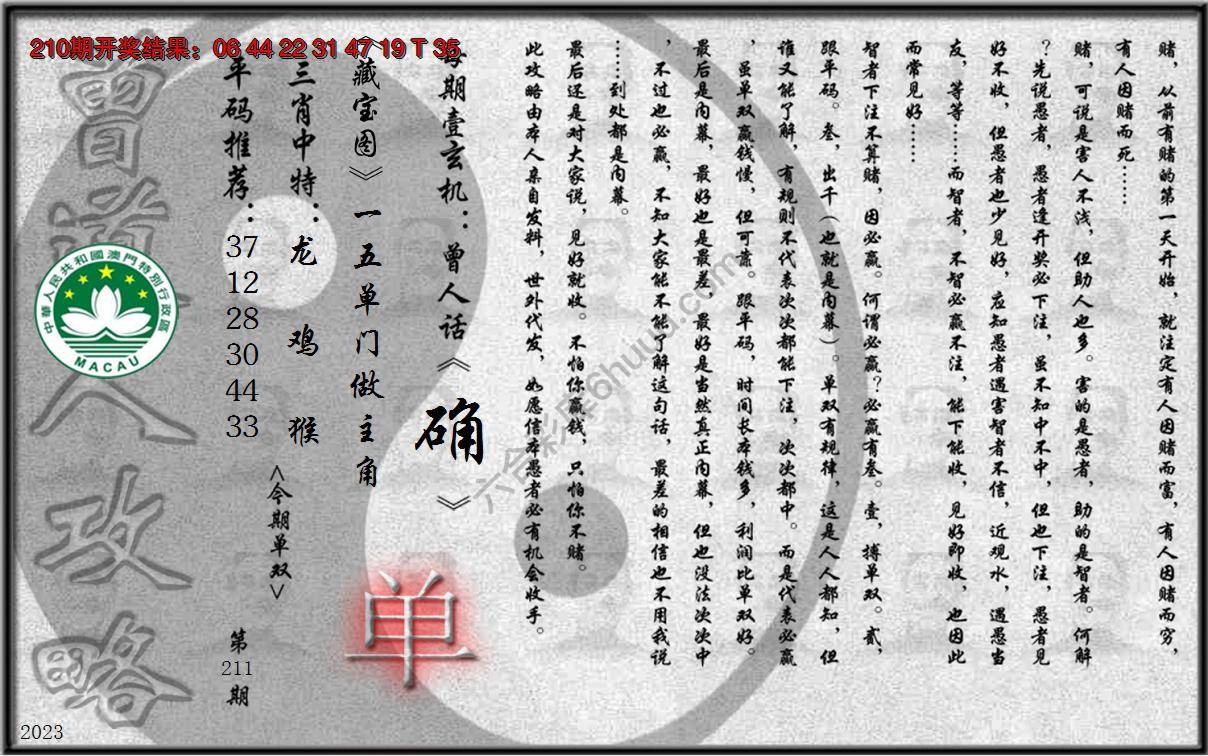 210期开奖结果：06 44 22 31 47 19 T 35
赌，从前有赌的第一天开始，就注定有人因赌而富，有人因赌而穷，
有人因赌而死……
赌，可说是害人不浅，但助人也多。害的是愚者，助的是智者。何解
？先说愚者，愚者逢开奖必下注，虽不知中不中，但也下注，愚者见
好不收，但愚者也少见好，应知愚者遇害智者不信，近观水，遇愚当
友，等等……而智者，不智必赢不注，能下能收，见好即收，也因此
而常见好……
智者下注不算赌，因必赢。何谓必赢？必赢有叁。壹，搏单双。贰，
跟平码。叁，出千（也就是内幕）。单双有规律，这是人人都知，但
谁又能了解，有规则不代表次次都能下注，次次都中。而是代表必赢
，虽单双赢钱慢，但可靠。跟平码，时间长本钱多，利润比单双好。
最后是内幕，最好也是最差，最好是当然真正内幕，但也没法次次中
，不过也必赢，不知大家能不能了解这句话，最差的相信也不用我说
……到处都是内幕。
最后还是对大家说，见好就收。不怕你赢钱，只怕你不赌。
此攻略由本人亲自发料，世外代发，如愿信本愚者必有机会收手。
每期壹玄机：曾人话《确》
《藏宝图》一五单门做主角
三肖中特：龙 鸡 猴
平码推荐：37 12 28 30 44 33
<今期单双>
单
第211期
曾道人攻略
中華人民共和國澳門特別行政區
MACAU
六合彩库6huuu.com
2023